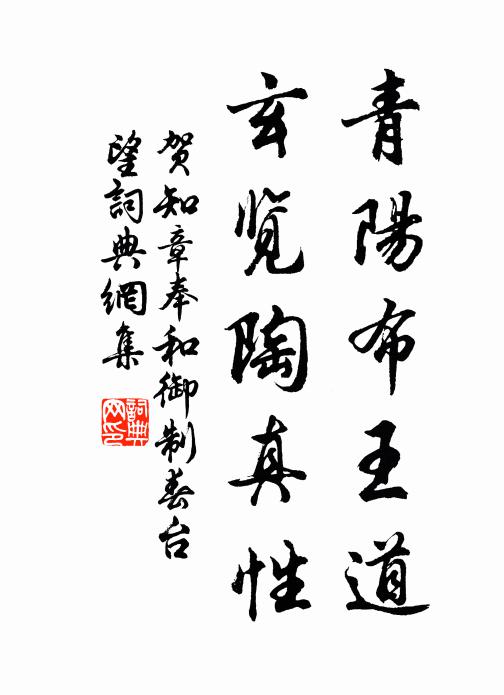 青陽布王道
玄览陶真性
贺知章奉和御制春台
望詞典網集
詞典
网印